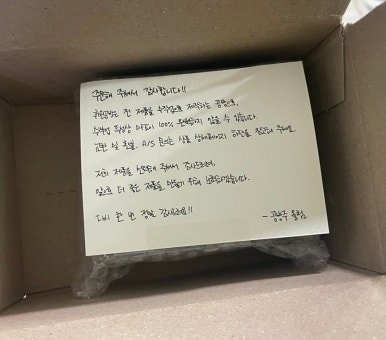 주문해 주셔서 감사합니다!!
전 제품을 수작업으로 제작하는 공방으로,
수작업 특성상 마감이 100% 완벽하지 않을 수 있습니다.
교환 및 환불, A/S 문의는 상품 상세페이지 하단을 참고해 주세요.
저희 제품을 선택해 주셔서 감사드리며,
앞으로 더 좋은 제품을 만들기 위해 노력하겠습니다.
다시 한 번 정말 감사해요!!
- 드림.